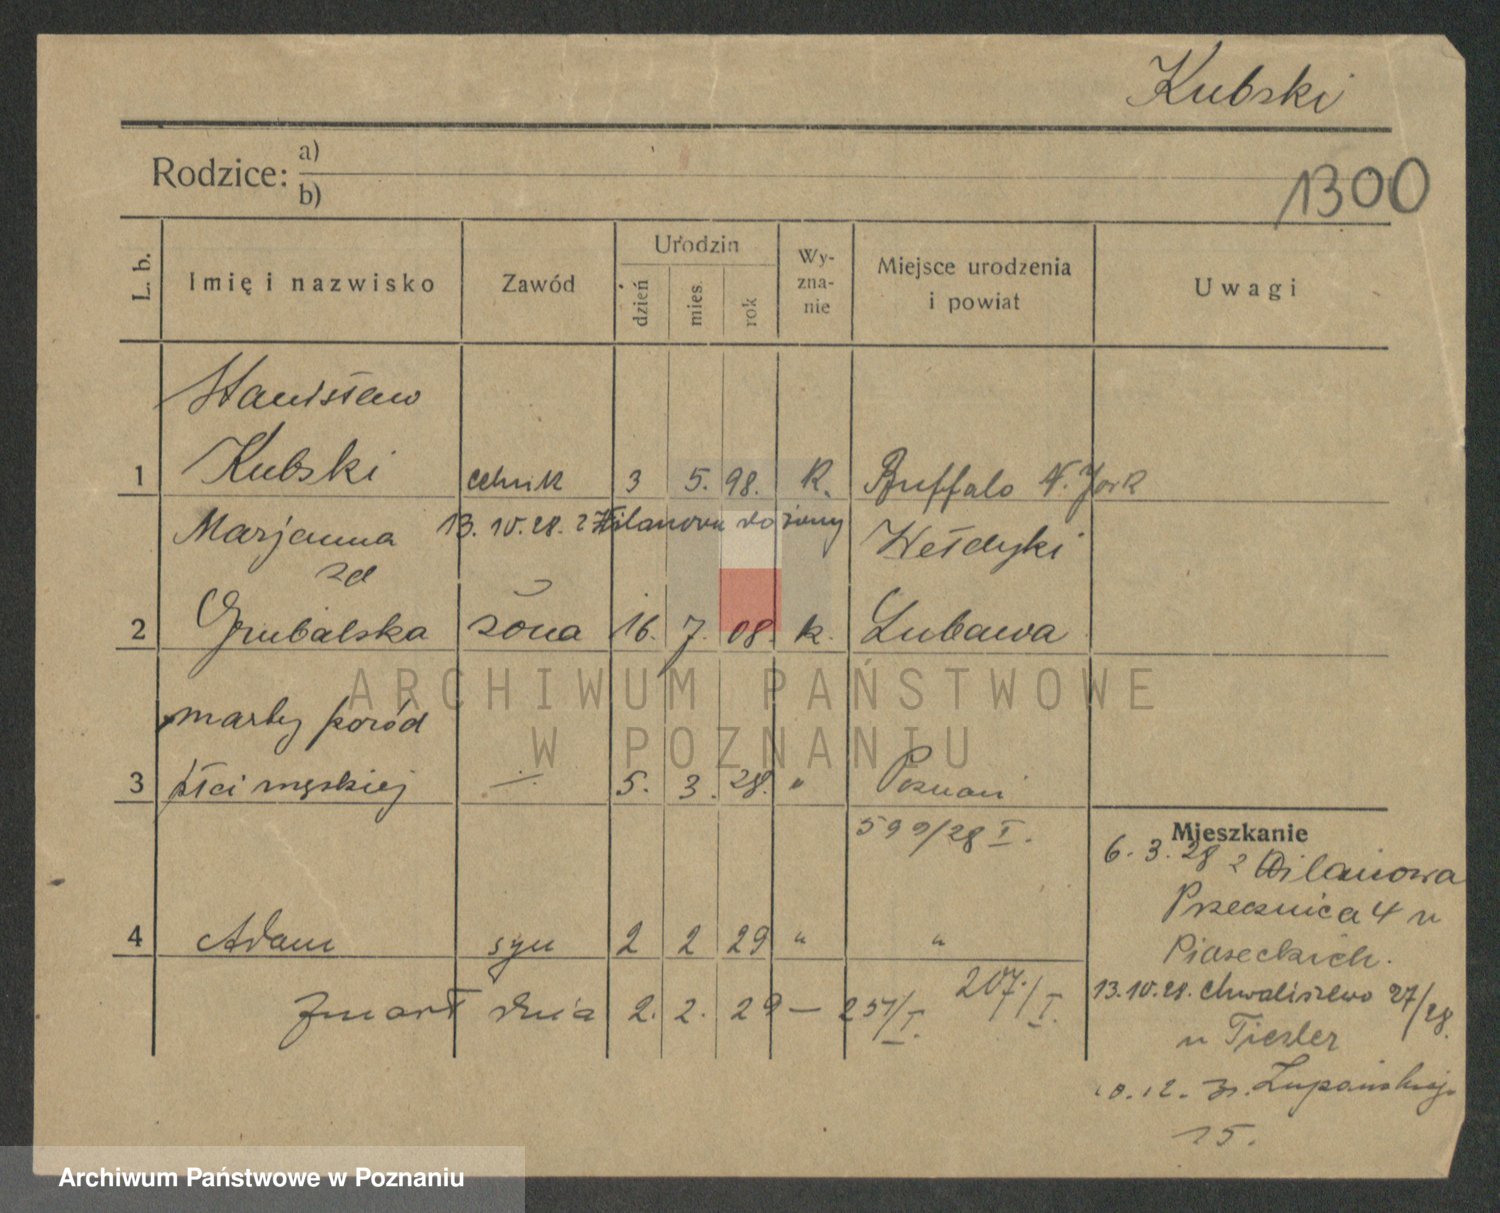 Kubski
Rodzice: a)
b)
1300
L. b. Imię i nazwisko Zawód Urodzin dzień mies. rok Wyznanie Miejsce urodzenia i powiat Uwagi
Stanisław
1 Kubski 3 5. 98. k. Buffalo N. York
Marjanna 13. 10. 28. z do żony
zd
2 Grubalska żona 16. 7. 08. k. Lubawa
martwy poród
3 płci męskiej -/- 5. 3. 28. " Poznań
599/28 I.
Mieszkanie
6. 3. 28 z Wilanowa
Przecznica 4 u
4 Adam syn 2 2 29 " "
Piaseckich.
207/I.
zmarł dnia 2. 2. 29 — 257/I.
13. 10. 28. Chwaliszewo 27/28.
u Tiesler
15.
ARCHIWUM PAŃSTWOWE
W POZNANIU
Archiwum Państwowe w Poznaniu